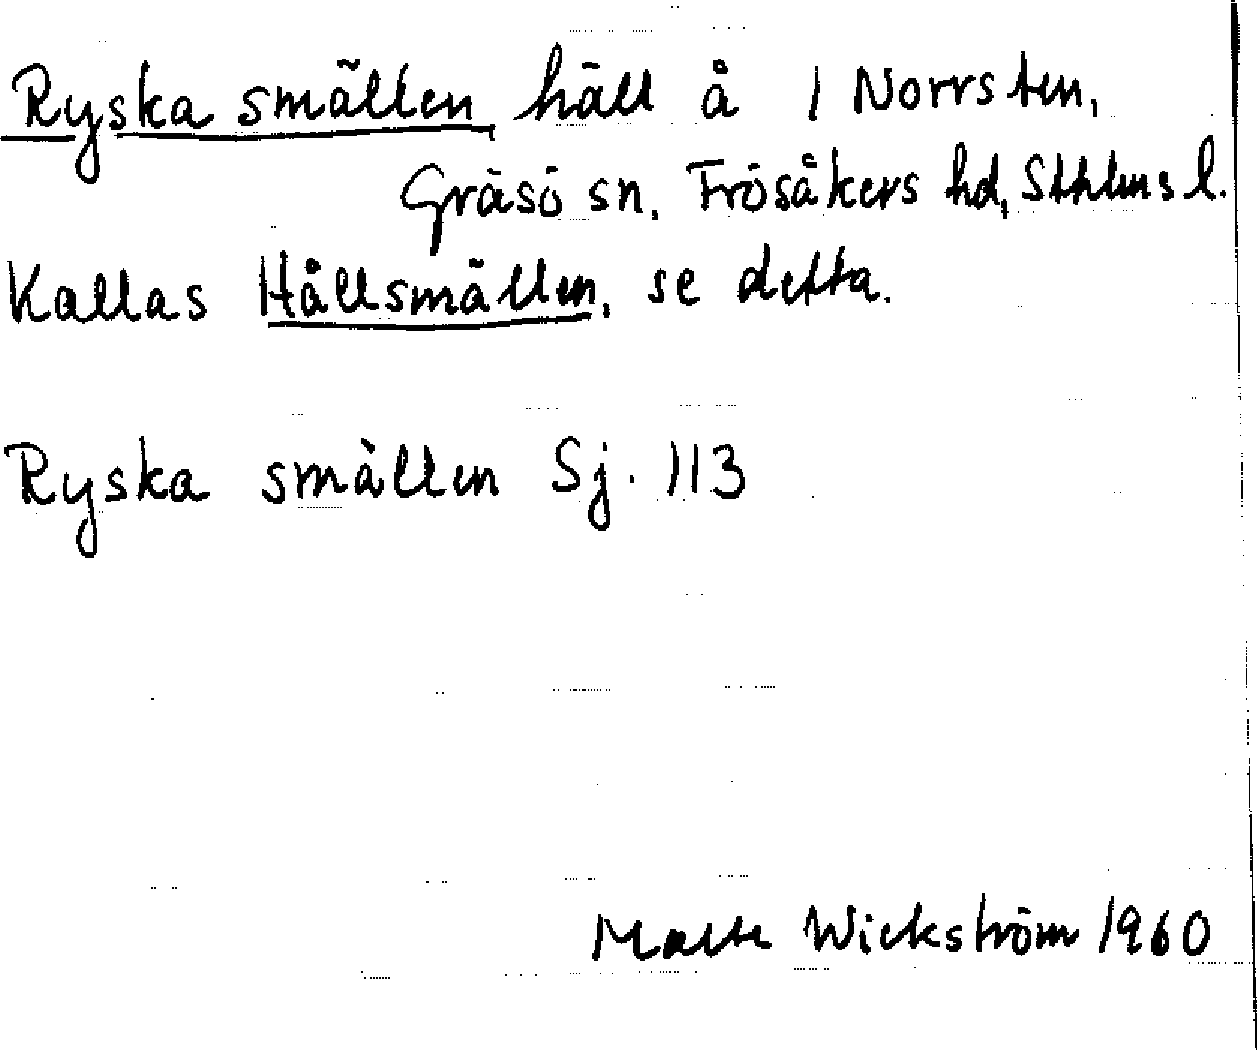 Ryska smällen, häll å 1 Norrsten,
Gräsö sn, Frösåkers hd, Sthlms l.
Kallas Hällsmällen, se detta.
Ryska smällen Sj. 113
Malte Wickström 1960